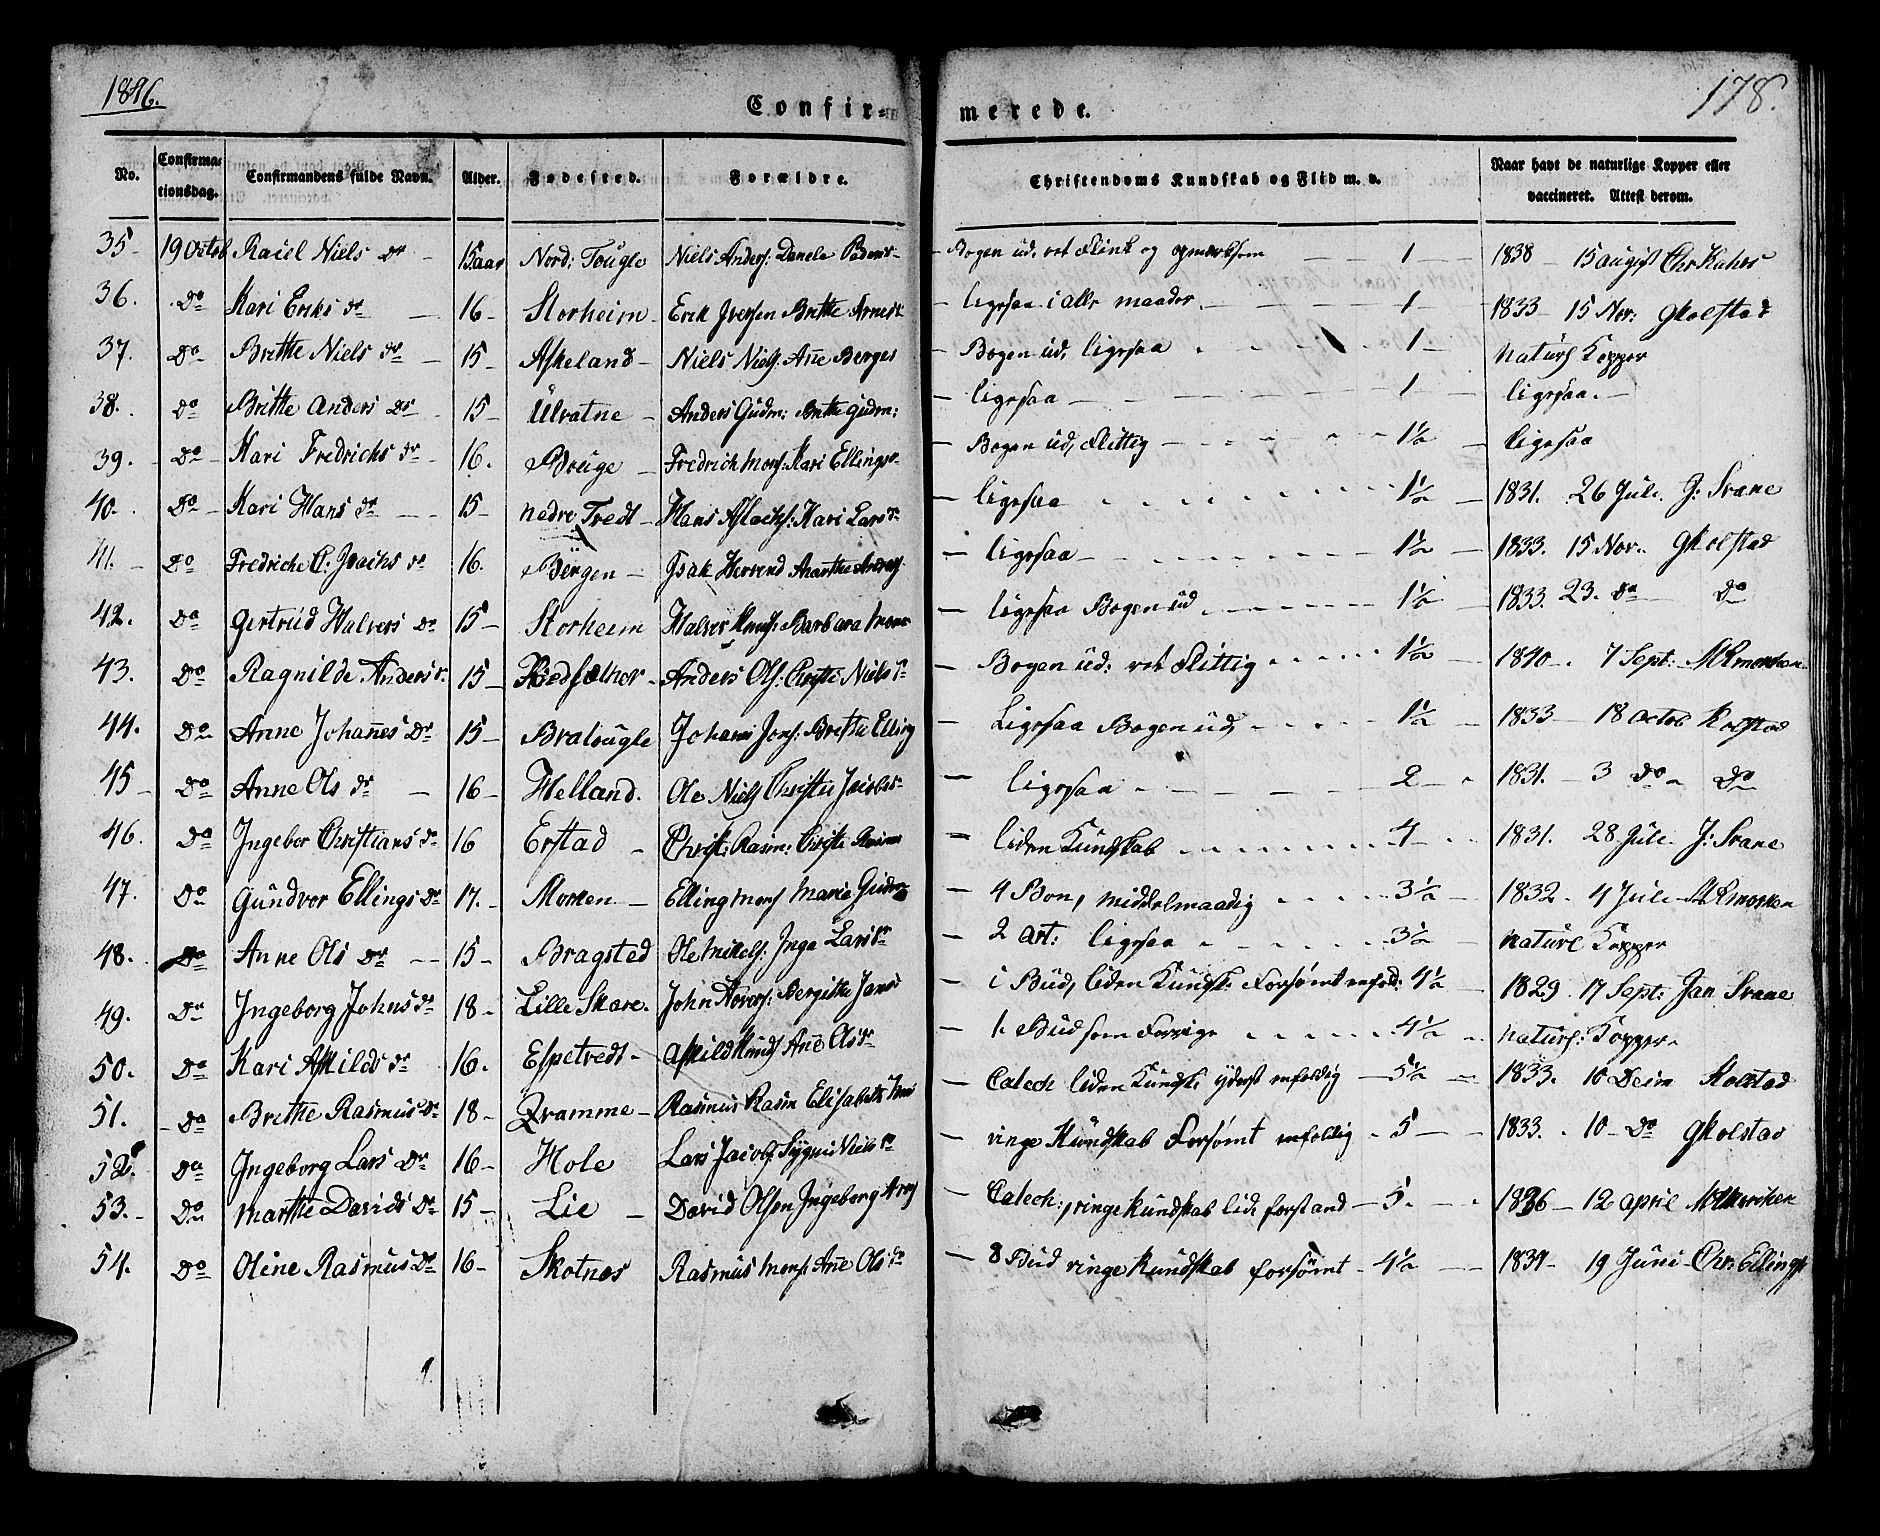 1846.
178.
Confir- merede.
No. Confirmationsdag. Confirmandens fulde Navn. Alder. Fødested. Forældre. Christendoms Kundskab og Flid m. v. Naar havt de naturlige Kopper eller vaccineret. Attest derom.
35 19 Octob Niels Dr 15 aar Nord: Tougle Niels Anders: Bogen ud, vel Flink og opmerksom 1 1838 15 august Chr
36. Do Kari Eriks dr 16 Storheim Erik Iversen Britthe ligesaa i alle maader 1 1833 15 Nov:
37. Do Britthe Niels dr 15 Askeland Niels Niels: Ane Berges Bogen ud, ligesaa 1 naturl Kopper
38. Do Britthe Anders Dr 15 Ulvatne Anders Gudm: Britthe Gudm: ligesaa 1 ligesaa
39. Do Kari Fredrichs dr 16. Fredrich Mons: Kari Ellings Bogen ud, flittig 1½ ligesaa
40. Do Kari Hans dr 15 nedre Tvedt Hans Aslachs: Kari Lars dr ligesaa 1½ 1831. 26 Juli. J: Svane
41. Do Fredriche C: Isachs dr 16. Bergen Isak ligesaa 1½ 1833. 15 Nov.
42. Do Gertrud Halvers dr 15 Storheim Halver Knuts: Barbara ligesaa Bogen ud 1½ 1833. 23. Do Do
43. Do Ragnilde Anders dr 15 Anders Ols: Christi Niels dr Bogen ud: vel flittig 1½ 1840. 7 Sept:
44. Do Anne Johannes Dr 15 Bratougle Johans Jons: Britthe Elling Ligesaa Bogen ud, 1½ 1833 18 octob Kolstad
45 Do Anne Ols dr 16 Helland. Ole Niels Christi Jacobs ligesaa 2 1831. 3 Do Do
46. Do Ingebor Christians dr 16 Erstad Christ: Rasm: Christi liden Kundskab 4 1831. 28 Juli. J: Svane
47. Do Gundvor Ellings Dr 17. Morken Elling Mons Maria Gudm 4 Bøn, middelmaadig 3½ 1832. 4 Juli
48. Do Anne Ols dr 15 Bragsted Ole Mikels: Inga Lars dr 2 Art: ligesaa 3½ naturl Kopper
49. Do Ingeborg Johns dr 18 Lille Skare. John Bergitthe Jans i Bud, liden Kundsk: Forsømt enfold: 4½ 1829 17 Sept: Jan Svane
50. Do Kari Askilds dr 16. Espetvedt Askild Knuds Ane Ols dr 1. Bud som Forrige 4½ naturl: Kopper
51. Do Britthe Rasmus Dr 18 Qvamme Rasmus Rasm Elisabeth Catech liden Kundsk: yderst enfoldig 5½ 1833. 10 Kolstad
52. Do Ingeborg Lars Dr 16 Hole Lars Jacobs Niels dr ringe Kundskab Forsømt enfoldig 5 1833. 10 Do
53. Do Marthe Davids Dr 15 Lie David Olsen Ingeborg Catech:, ringe Kundskab lide forstand 5. 1836 12 april
54. Do Oline Rasmus Dr 16 Skotnes Rasmus Mons: Ane Ols dr 8 Bud ringe Kundskab forsømt 4½ 1839 19 Juni Chr: Ellings